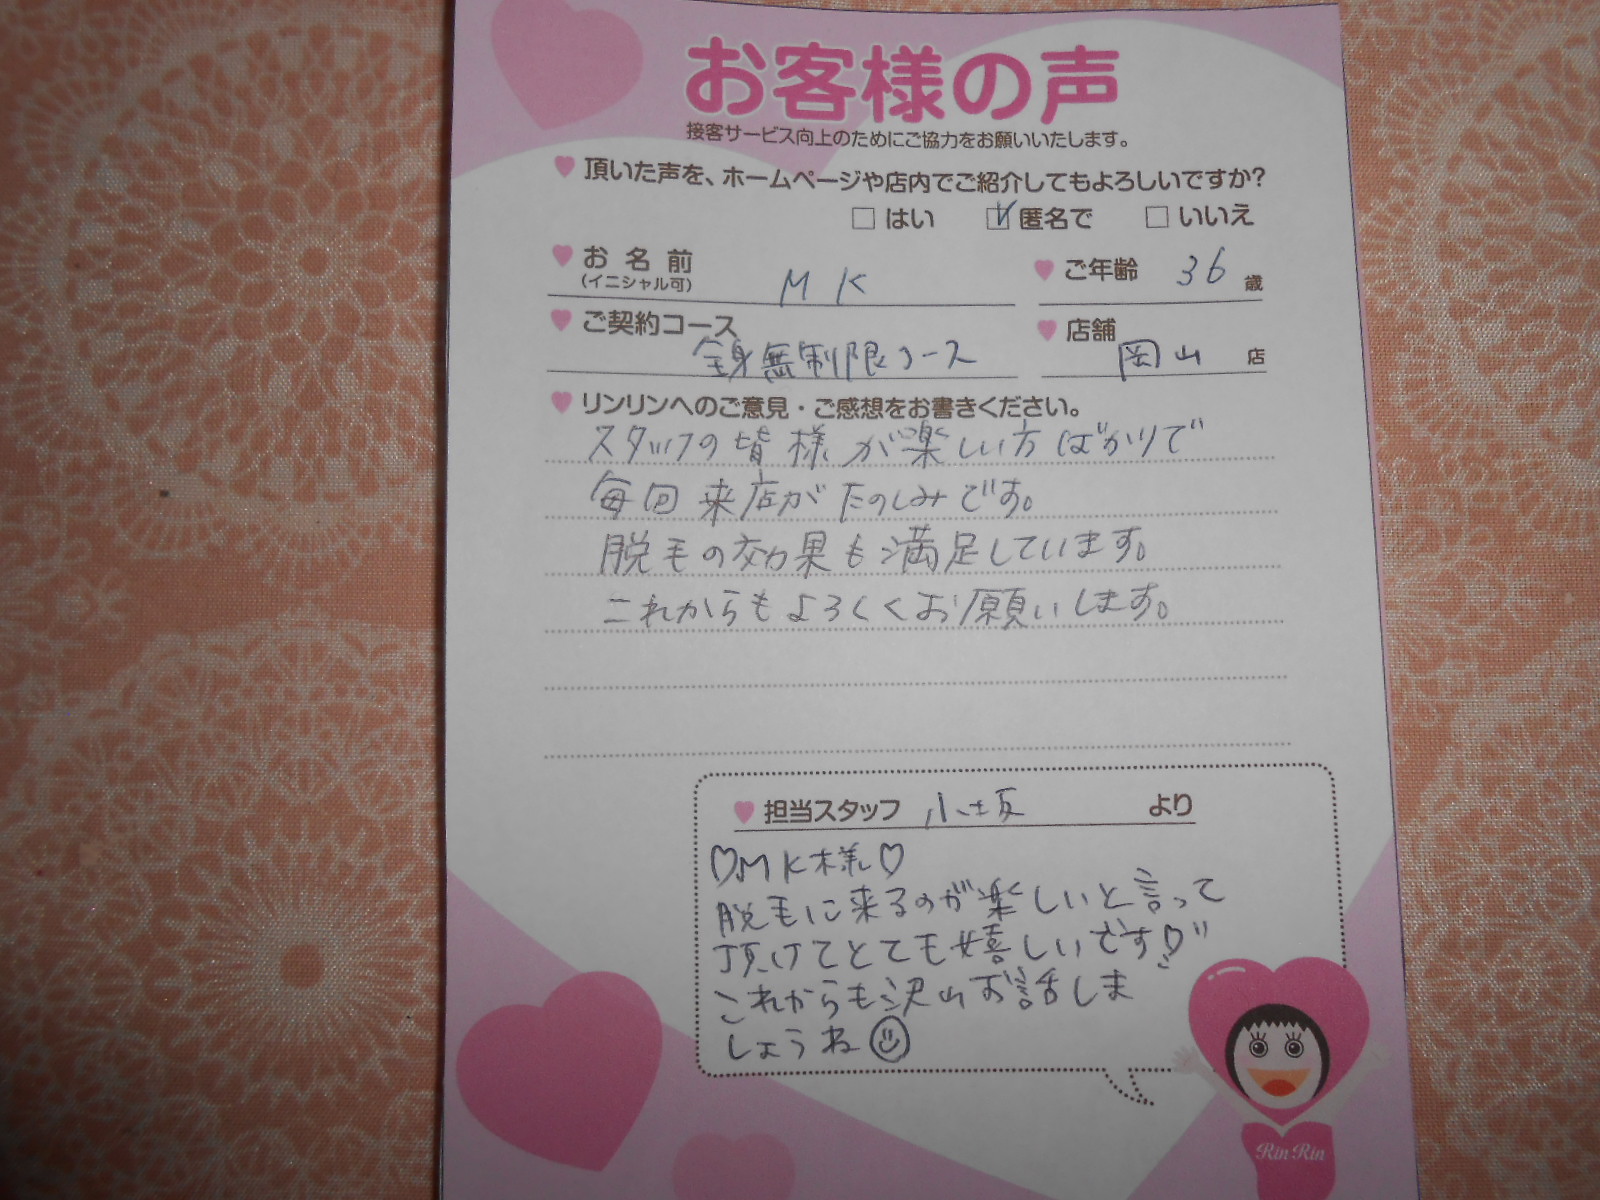 お客様の声
接客サービス向上のためにご協力をお願いいたします。
頂いた声を、ホームページや店内でご紹介してもよろしいですか?
はい 匿名で いいえ
お名前 MK ご年齢 36 歳
(イニシャル可)
ご契約コース 全身無制限コース 店舗 岡山 店
リンリンへのご意見・ご感想をお書きください。
スタッフの皆様が楽しい方ばかりで
毎回来店がたのしみです。
脱毛の効果も満足しています。
これからもよろしくお願いします。
担当スタッフ 小坂 より
♡MK様♡
脱毛に来るのが楽しいと言って
頂けてとても嬉しいです♡
これからも沢山お話しま
しょうね
Rin Rin